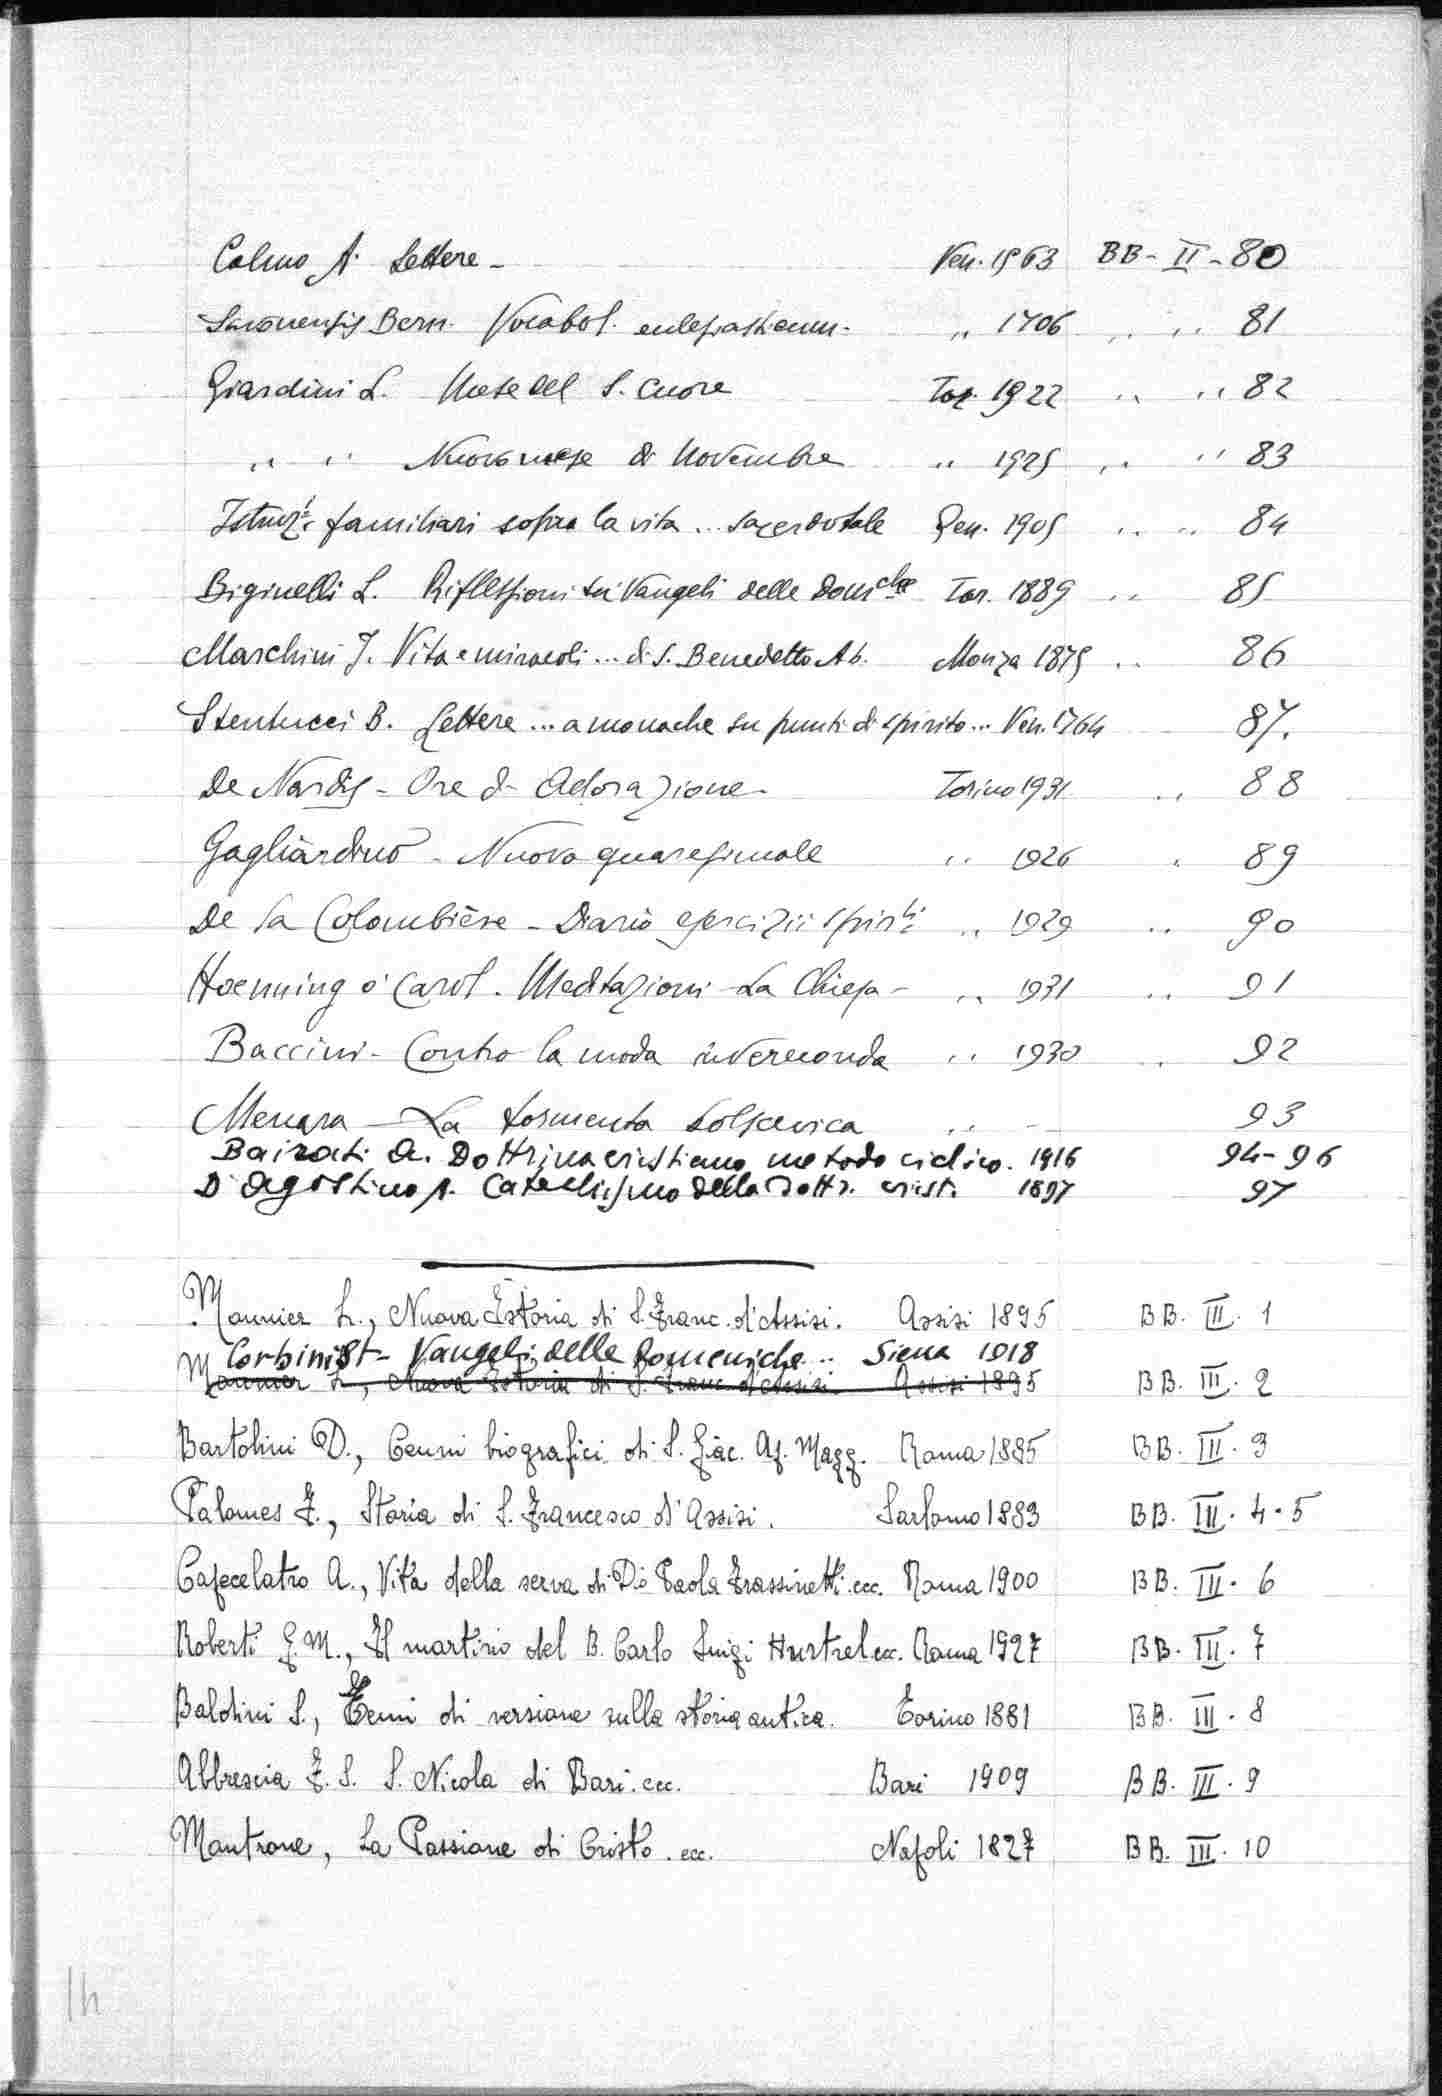 Calmo A. Lettere - Ven. 1563 BB - II - 80
Bern. Vocabol. ,, 1706 ,, ,, 81
Giardini L. Mese del S. Cuore Tor. 1922 ,, ,, 82
,, ,, Nuovo mese di Novembre ,, 1925 ,, ,, 83
familiari sopra la vita ... sacerdotale Gen. 1905 ,, ,, 84
Biginelli L. Riflessioni sui Vangeli delle Domche Tor. 1889 ,, 85
Marchini J. Vita e miracoli ... di S. Benedetto Ab. Monza 1875 ,, 86
Stentucci B. Lettere ... a monache su punti di spirito ... Ven. 1764 87.
De Nardis - Ore di Adorazione - Torino 1931 ,, 88
Gagliardino - Nuovo quaresimale ,, 1926 ,, 89
De la Colombière - Diario esercizii spirli ,, 1929 ,, 90
Hoenning o' Carol. Meditazioni - La Chiesa - ,, 1931 ,, 91
Baccini - Contro la moda invereconda ,, 1930 ,, 92
Menara - La tormenta bolscevica ,, - 93
Bairati A. Dottrina cristiana metodo ciclico. 1916 94-96
D'Agostino A. Catechismo della Dottr. crist. 1897 97
Mounier L., Nuova Istoria di S. Franc. d'Assisi. Assisi 1895 BB. III. 1
Corsini St - Vangeli delle Domeniche .. Siena 1918
Mounier L., Nuova Istoria di S. Franc. d'Assisi Assisi 1895 BB. III. 2
Bartolini D., Cenni biografici di S. Giac. Ap. Magg. Roma 1885 BB. III. 3
Palomes F., Storia di S. Francesco d'Assisi. 1883 BB. III. 4-5
Capecelatro A., Vita della serva di Dio Paola Frassinetti. ecc. Roma 1900 BB. III. 6
Roberti G. M., Il martirio del B. Carlo Luigi Hurtrel ecc. Roma 1927 BB. III. 7
Baldini S., Temi di versione sulla storia antica. Torino 1881 BB. III. 8
Abbrescia F. S. S. Nicola di Bari. ecc. Bari 1909 BB. III. 9
Mantrone, La Passione di Cristo. ecc. Napoli 1827 BB. III. 10
14